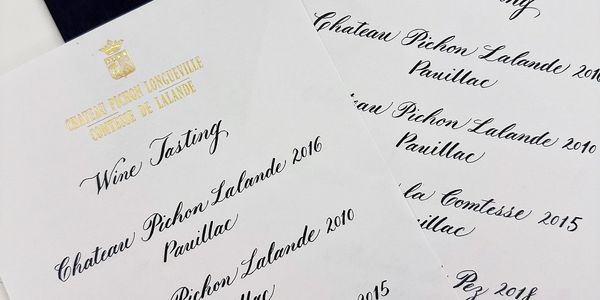 CHATEAU PICHON LONGUEVILLE
COMTESSE DE LALANDE
Wine Tasting
Chateau Pichon Lalande 2016
Pauillac
Pichon Lalande 2010
2015
Chateau Pichon Lalande 2016
Pauillac
Pichon Lalande 2010
Pauillac
la Comtesse 2015
Pez 2018